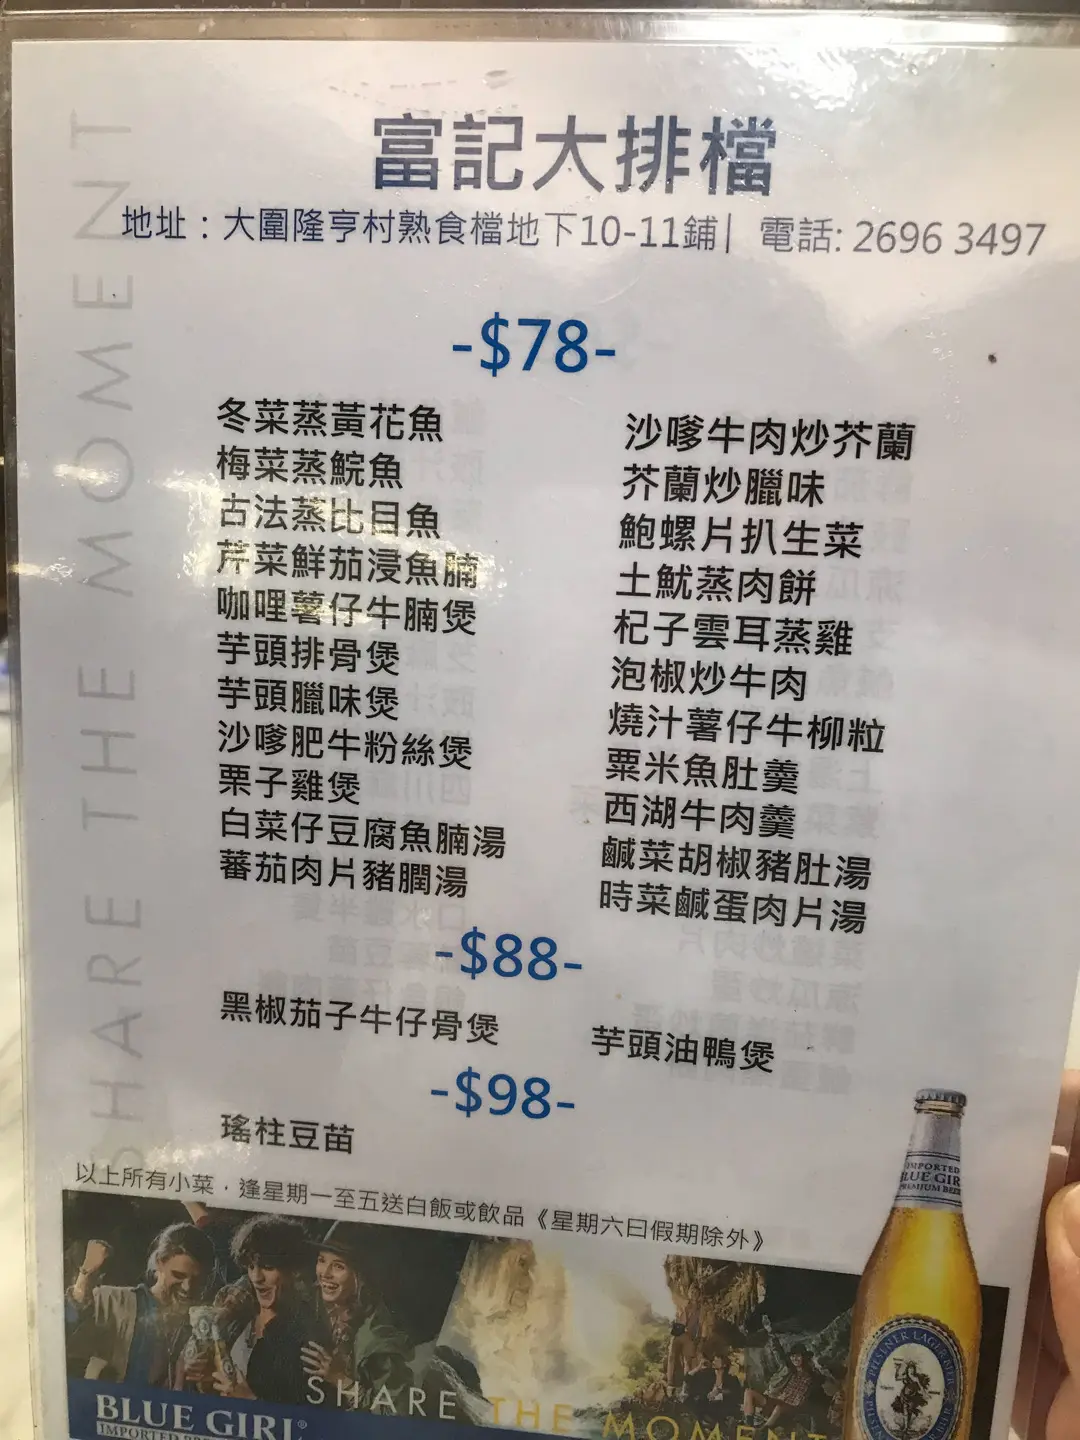 富記大排檔
地址：大圍隆亨村熟食檔地下10-11鋪| 電話: 2696 3497
-$78-
冬菜蒸黃花魚
梅菜蒸鯇魚
古法蒸比目魚
芹菜鮮茄浸魚腩
咖哩薯仔牛腩煲
芋頭排骨煲
芋頭臘味煲
沙嗲肥牛粉絲煲
栗子雞煲
白菜仔豆腐魚腩湯
蕃茄肉片豬膶湯
沙嗲牛肉炒芥蘭
芥蘭炒臘味
鮑螺片扒生菜
土魷蒸肉餅
杞子雲耳蒸雞
泡椒炒牛肉
燒汁薯仔牛柳粒
粟米魚肚羹
西湖牛肉羹
鹹菜胡椒豬肚湯
時菜鹹蛋肉片湯
-$88-
黑椒茄子牛仔骨煲
芋頭油鴨煲
-$98-
瑤柱豆苗
以上所有小菜．逢星期一至五送白飯或飲品《星期六日假期除外》
SHARE THE MOMENT
SHARE THE MOMENT
BLUE GIRL®
IMPORTED
IMPORTED
BLUE GIRL
PREMIUM BEER
PILSENER LAGER BEER